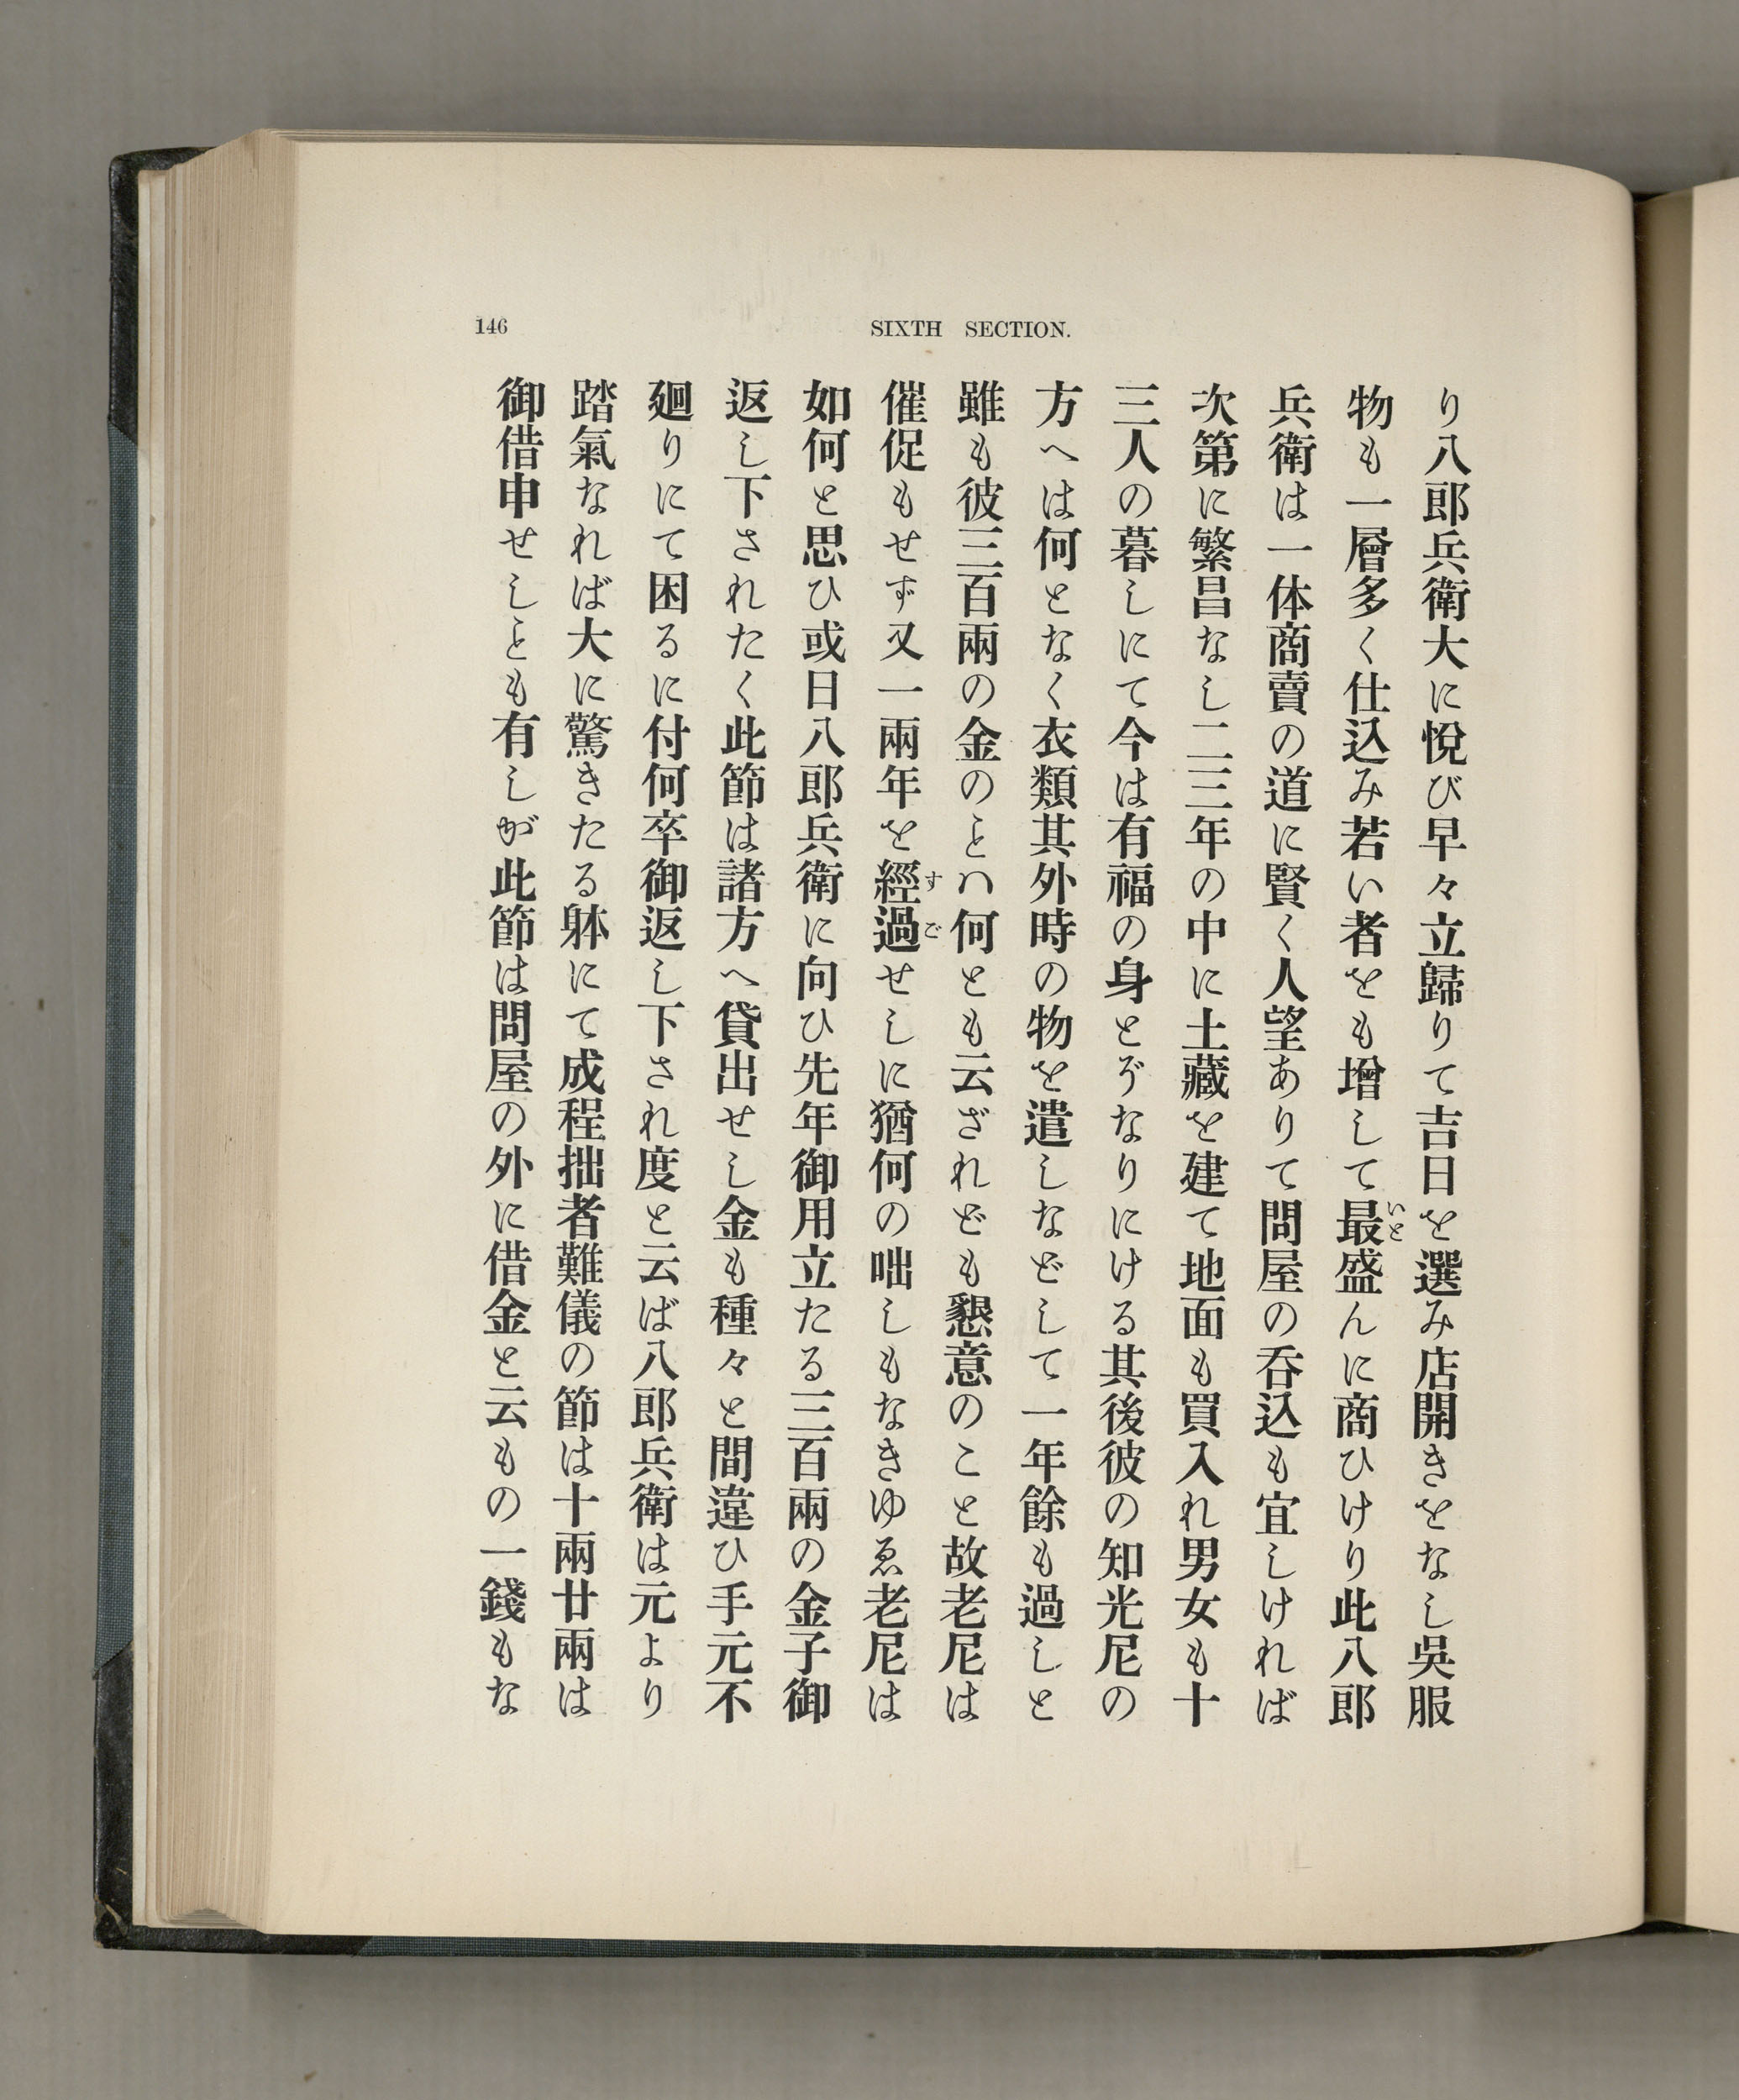 146
SIXTH SECTION.
り八郎兵衛大に悅び早々立歸りて吉日を選み店開きをなし吳服
物も一層多く仕込み若い者をも增して最盛んに商ひけり此八郎
いと
兵衛は一体商賣の道に賢く人望ありて問屋の呑込も宜しければ
次第に繁昌なし二三年の中に土藏を建て地面も買入れ男女も十
三人の暮しにて今は有福の身とぞなりにける其後彼の知光尼の
方へは何となく衣類其外時の物を遣しなどして一年餘も過しと
雖も彼三百兩の金のことハ何とも云ざれども懇意のこと故老尼は
催促もせず又一兩年を經過せしに猶何の咄しもなきゆゑ老尼は
すご
如何と思ひ或日八郎兵衛に向ひ先年御用立たる三百兩の金子御
返し下されたく此節は諸方へ貸出せし金も種々と間違ひ手元不
廻りにて困るに付何卒御返し下され度と云ば八郎兵衛は元より
踏氣なれば大に驚きたる躰にて成程拙者難儀の節は十兩廿兩は
御借申せしことも有しが此節は問屋の外に借金と云もの一錢もな